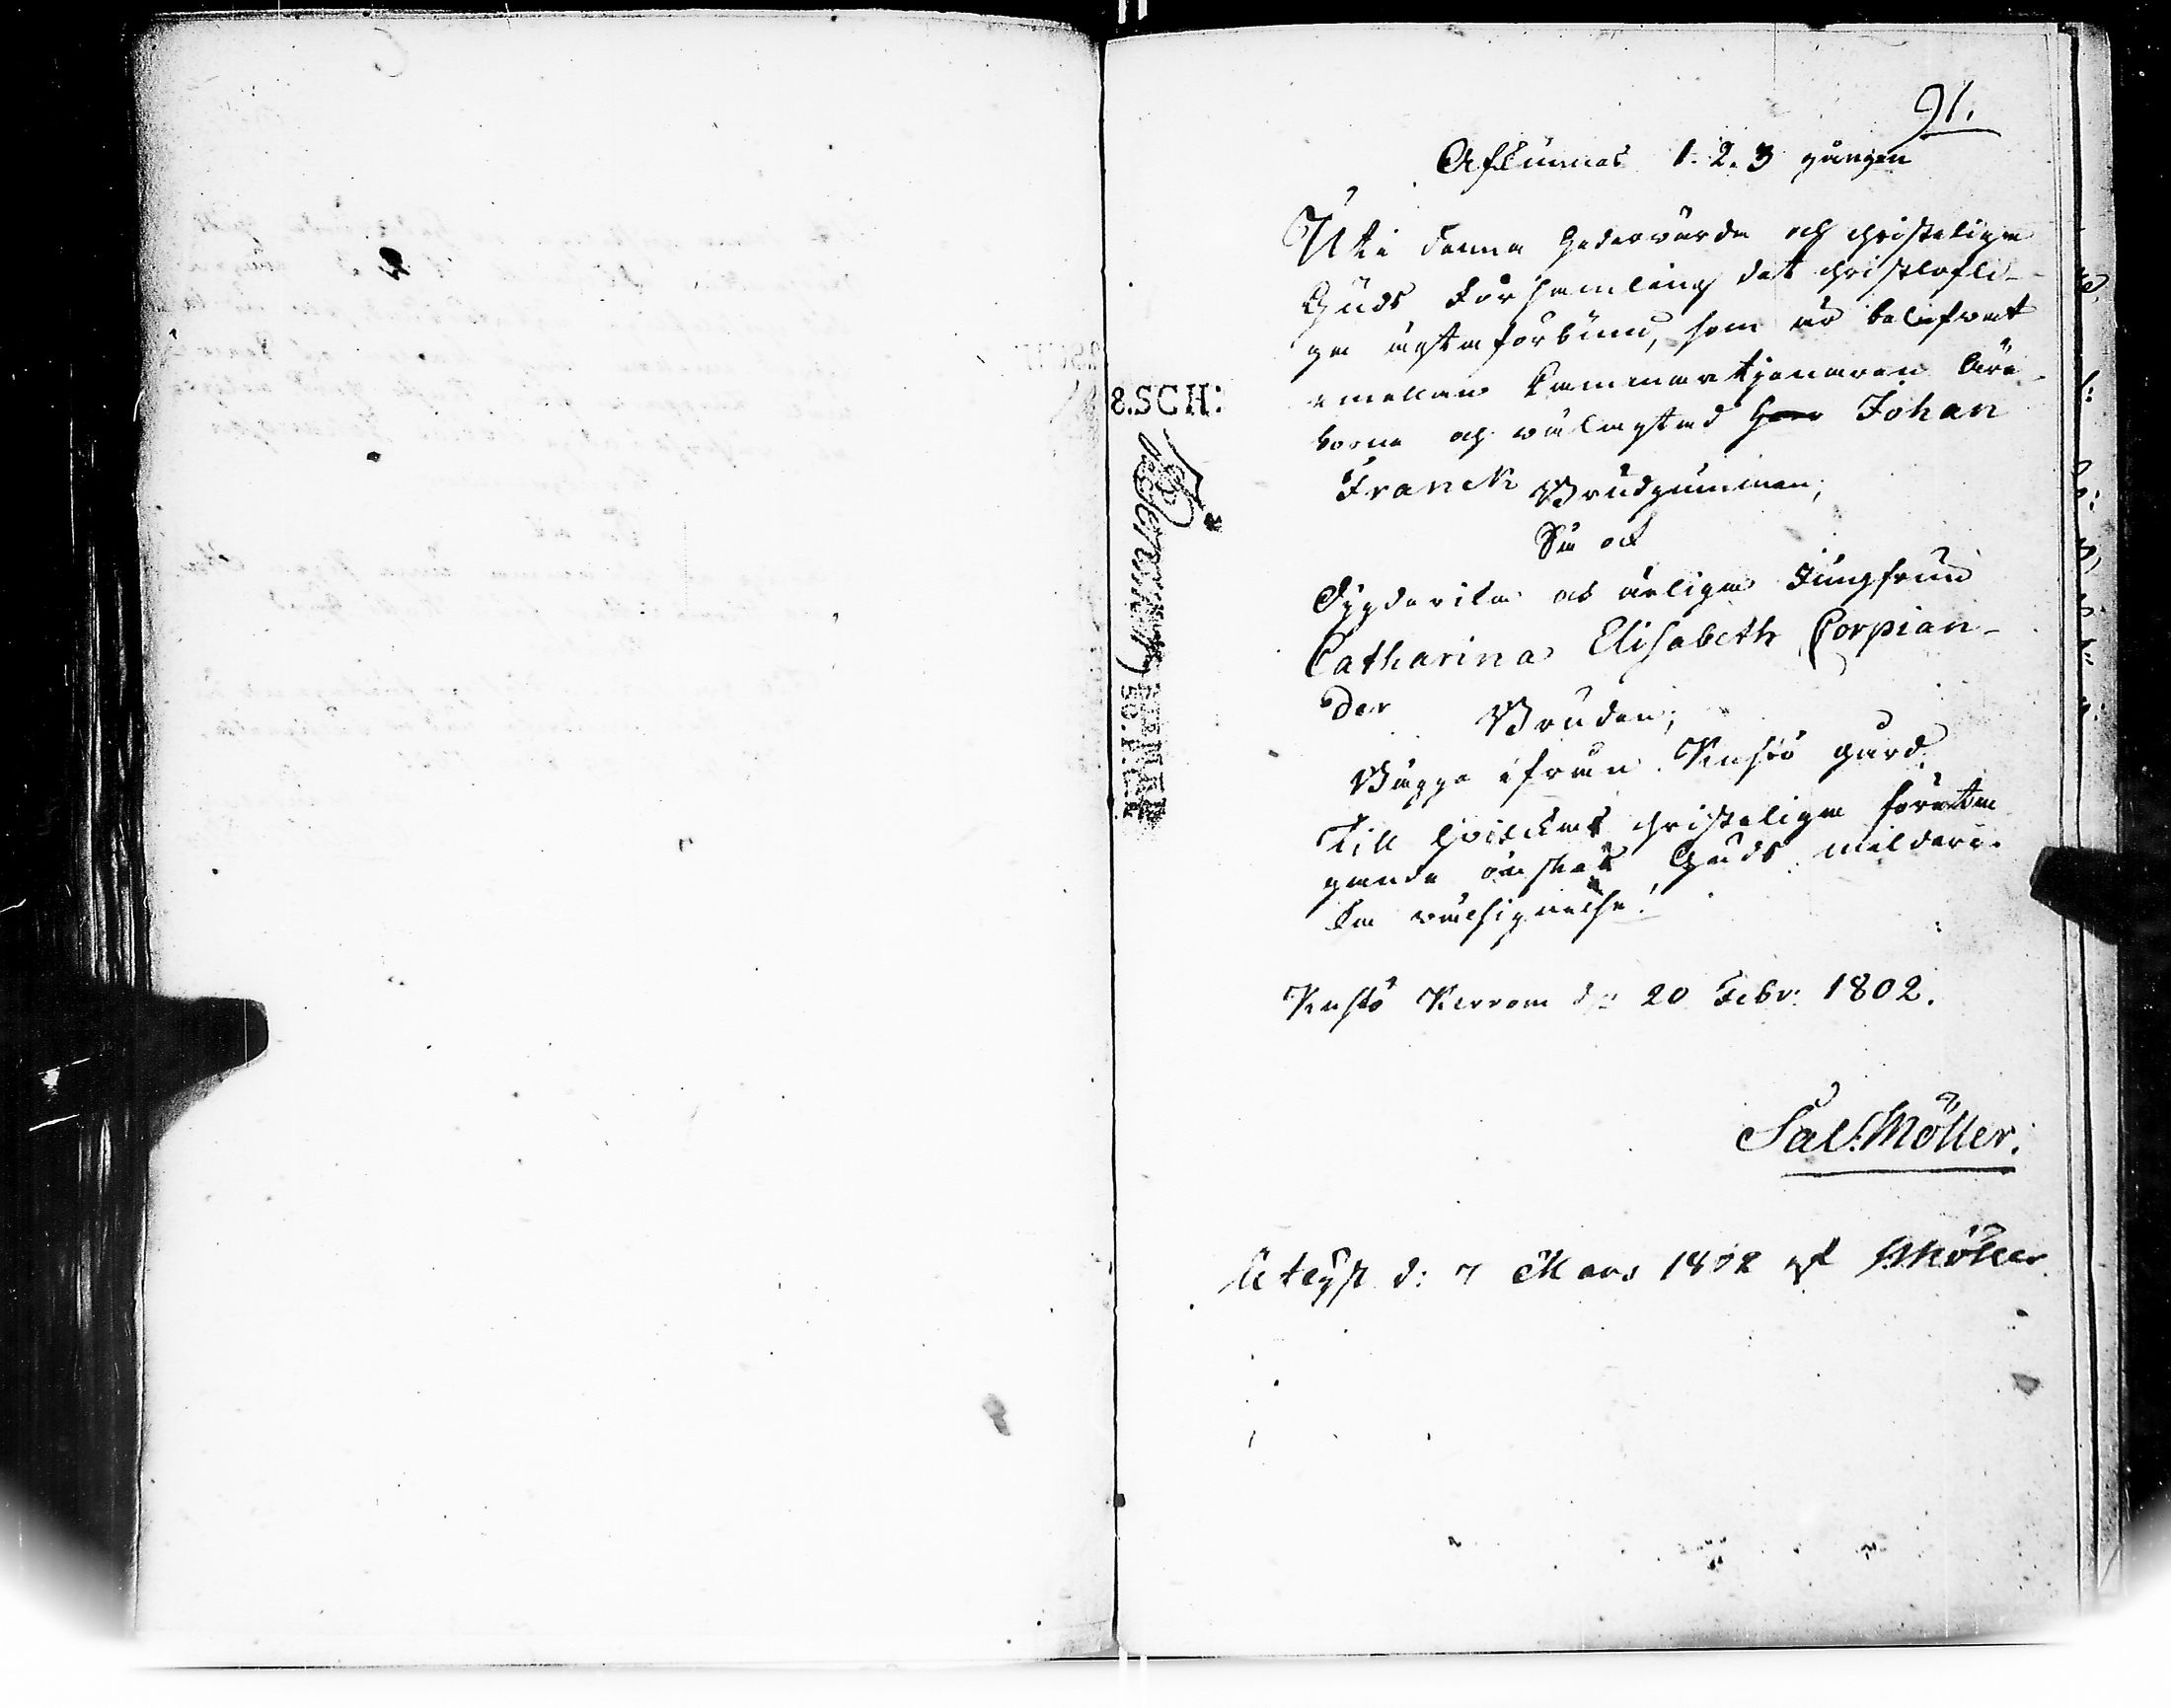 91.
Aflÿses 1. 2. 3 gången
Uti denna hedervärda och christeliga
Guds Församling det christlofli-
ga ägtaförbund, som är belefvat
emellan Cammartjenaren Äre-
borne och wälagtad herr Johan
Franck Brudgummen;
Så ock
Dygderika och ärliga Jungfrun
Catharina Elisabeth Corpian-
der Bruden;
Bägge ifrån Kustö gård.
Till hvilckas christeliga företa-
gande önskas Guds milderi-
ka wälsignelse!
Kustö d: 20 Febr: 1802.
Sal: Möller.
Utlyst d: 7 Mars 1802 af SMöller
8.SCH: